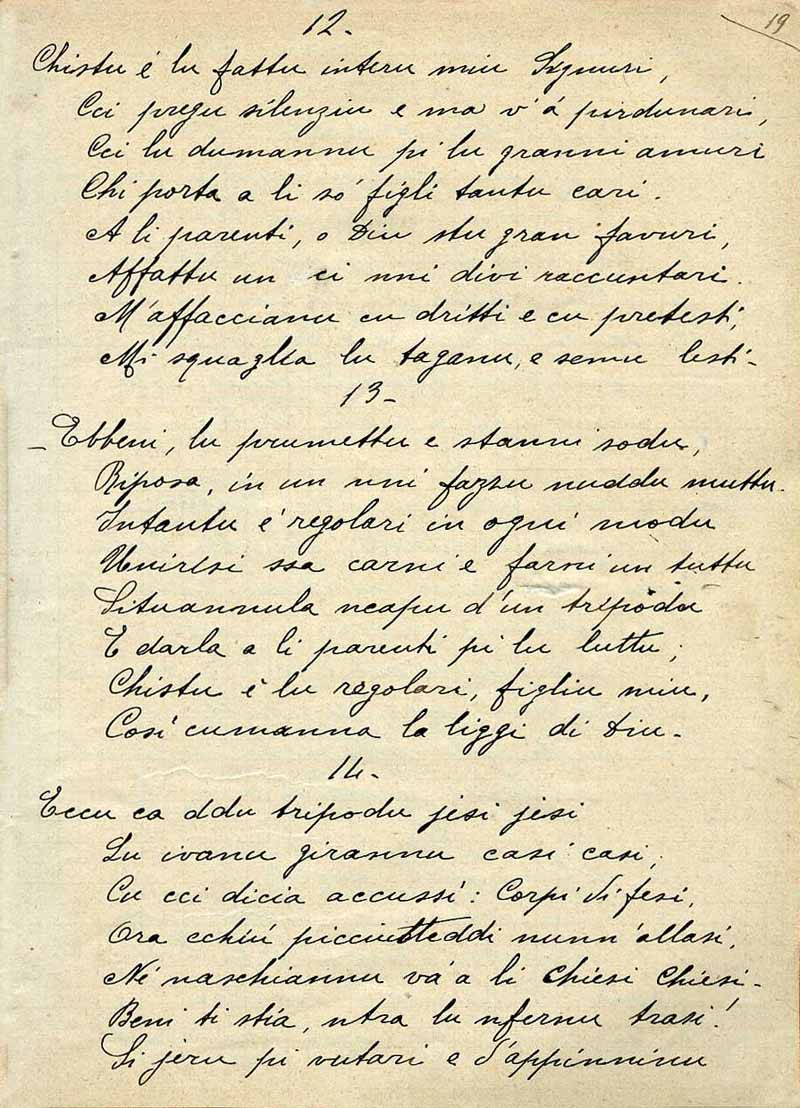 12-
19
Chistu é lu fattu interu miu Signuri,
Cci pregu silenziu e ma v'á pirdunari,
Cci lu dumannu pi lu granni amuri
Chi porta a li só figli tantu cari.
A li parenti, o Diu stu gran favuri,
Affattu un ci nni divi raccuntari.
M'affaccianu cu dritti e cu pretesti,
Mi squaglia lu taganu, e semu lesti-
13-
- Ebbeni, lu prumettu e stanni sodu,
Riposa, in un nni fazzu nuddu muttu.
Intantu é regolari in ogni modu
Unirisi ssa carni e farni un tuttu
Situannula ncapu d'un tripodu
E darla a li parenti pi lu luttu;
Chistu é lu regolari, figliu miu,
Cosí cumanna la liggi di Diu-
14-
Eccu ca ddu tripodu jesi jesi
Lu ivanu girannu casi casi,
Cu cci dicia accussí: Corpi di fesi,
Ora cchiú picciutteddi nunn'allasi,
Né naschiannu vá a li chiesi chiesi-
Beni ti stia, ntra lu nfernu trasi!
Si jeru pi vutari e d'appinninu